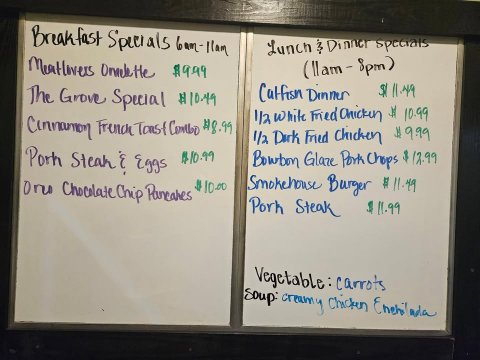 Breakfast Specials 6am-11am
Meatlovers Omelette $9.99
The Grove Special $10.49
Cinnamon French Toast Combo $8.99
Pork Steak & Eggs $10.99
Oreo Chocolate Chip Pancakes $10.00
Lunch & Dinner Specials
(11am - 8pm)
Catfish Dinner $11.49
1/2 White Fried Chicken $10.99
1/2 Dark Fried Chicken $9.99
Bourbon Glaze Pork Chops $12.99
Smokehouse Burger $11.49
Pork Steak $11.99
Vegetable: carrots
Soup: creamy chicken Enchilada